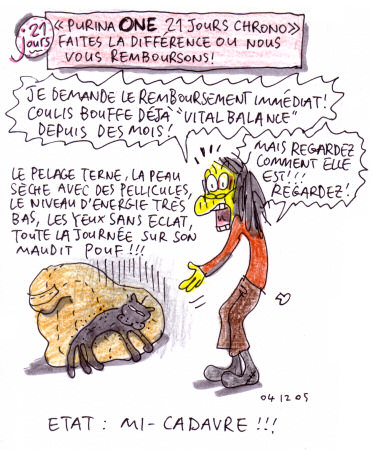 21
jours
«PURINA ONE 21 JOURS CHRONO»
FAITES LA DIFFÉRENCE OU NOUS
VOUS REMBOURSONS!
JE DEMANDE LE REMBOURSEMENT IMMÉDIAT!
COULIS BOUFFE DÉJÀ "VITAL BALANCE"
DEPUIS DES MOIS!
MAIS REGARDEZ
COMMENT ELLE
EST!!!
REGARDEZ!
LE PELAGE TERNE, LA PEAU
SÈCHE AVEC DES PELLICULES,
LE NIVEAU D'ENERGIE TRÈS
BAS, LES YEUX SANS ECLAT,
TOUTE LA JOURNÉE SUR SON
MAUDIT POUF!!!
04 12 05
ETAT : MI-CADAVRE!!!